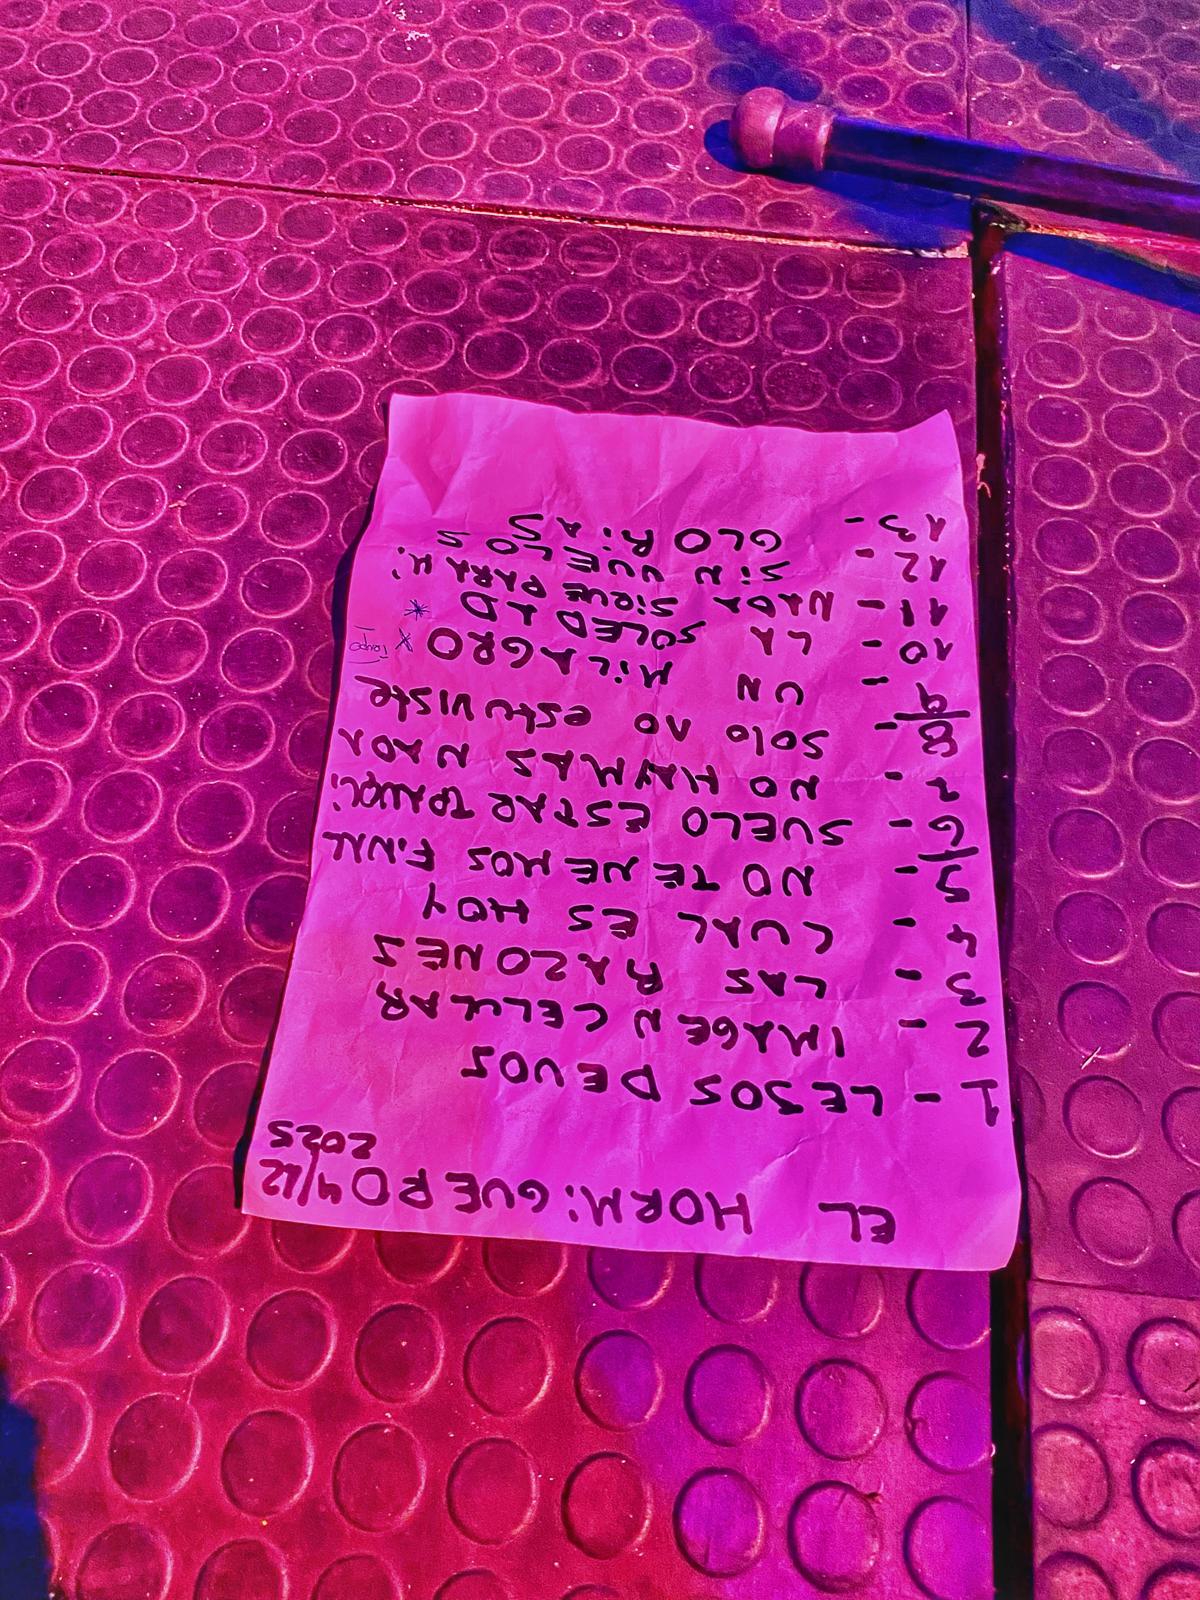 EL HORMiGUERO 4/12 2025
1- LEJOS DE VOS
2- IMAGEN CELULAR
3- LAS RAZONES
4- CUAL ES HOY
5- NO TENEMOS FiNAL
6- SUELO ESTAR TRANQUi
7- NO HAY MAS NADA
8- solo no estuviste
9- UN MiLAGRO x
10- LA SOLEDAD *
11- NADA SiGUE PARA Mi
12- SiN VUELOS
13- GLORiAS